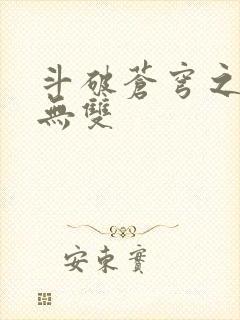 斗破蒼穹之
無雙
安東實